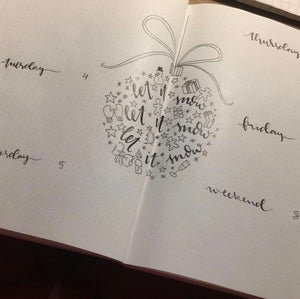 thursday
tuesday 4
let it snow
let it snow
let it snow
friday
5
weekend
8